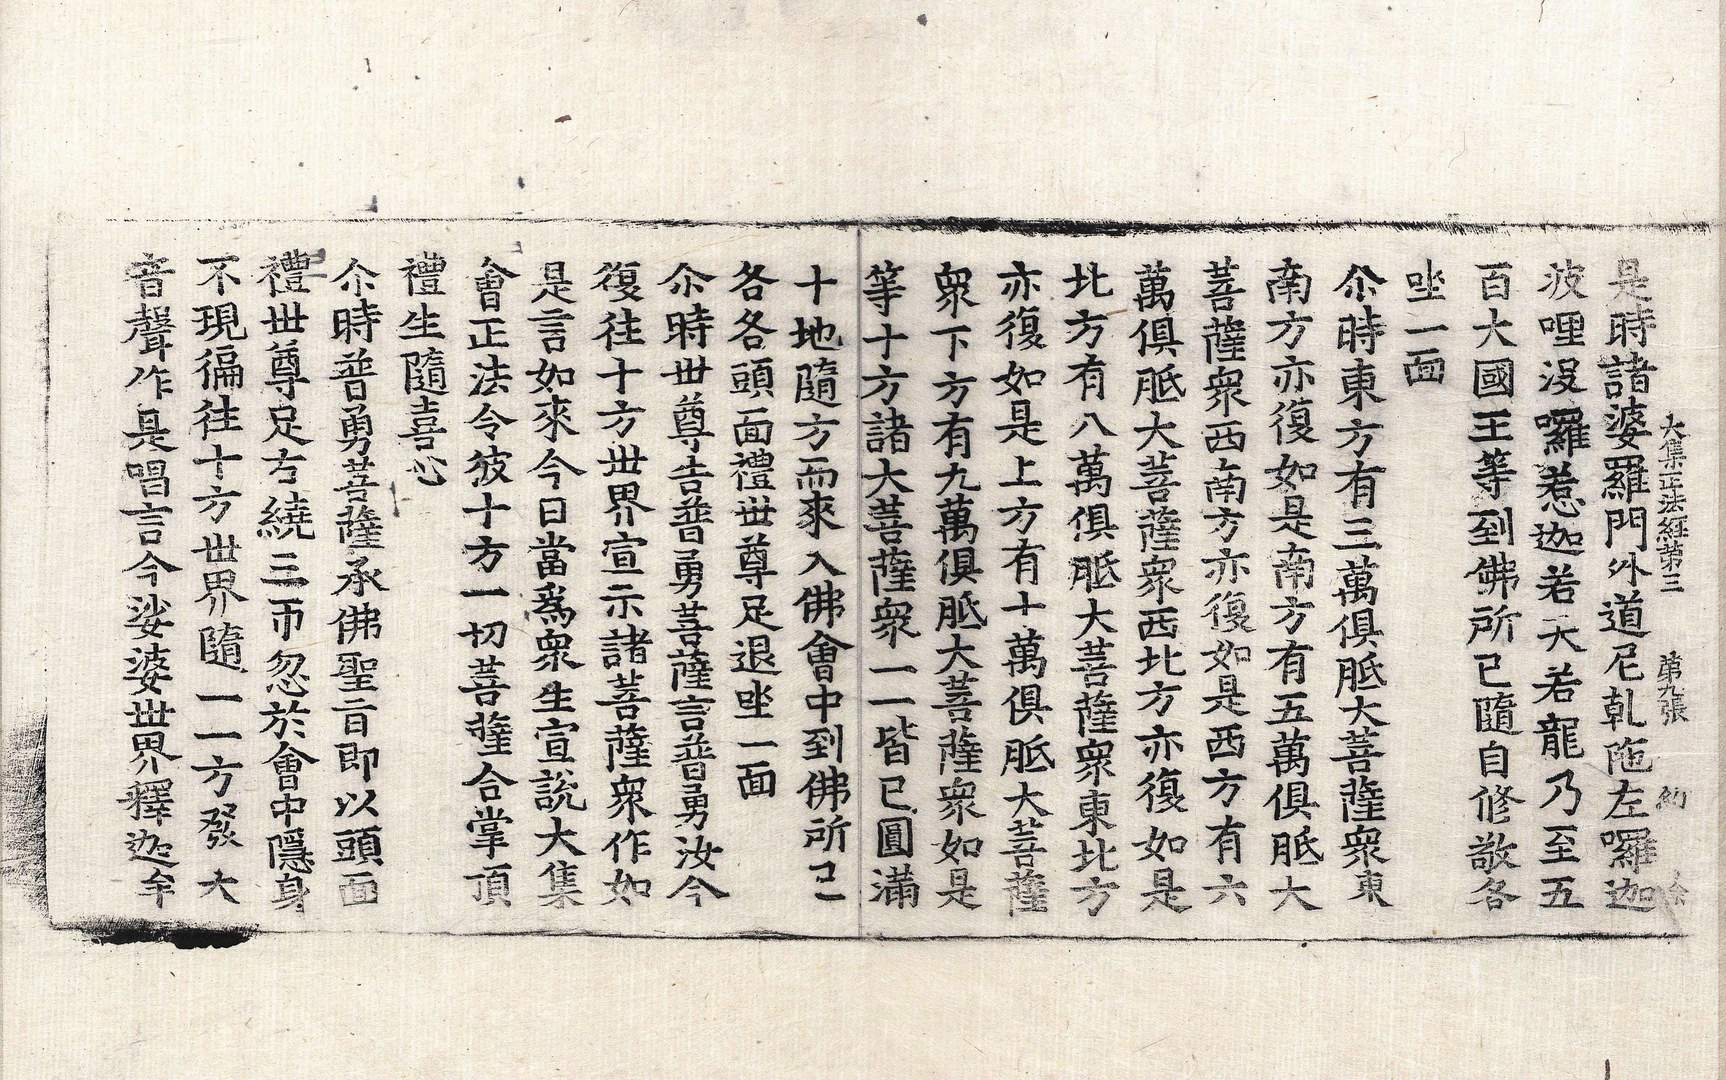 大集正法經第三 第九張 約
是時諸婆羅門外道尼乹陁左囉迦
波哩没囉惹迦若天若龍乃至五
百大國王等到佛所已隨自修敬各
坐一面
尒時東方有三萬俱胝大菩薩衆東
南方亦復如是南方有五萬俱胝大
菩薩衆西南方亦復如是西方有六
萬俱胝大菩薩衆西北方亦復如是
北方有八萬俱胝大菩薩衆東北方
亦復如是上方有十萬俱胝大菩薩
衆下方有九萬俱胝大菩薩衆如是
等十方諸大菩薩衆一一皆已圓滿
十地隨方而來入佛會中到佛所已
各各頭面禮世尊足退坐一面
尒時世尊告普勇菩薩言普勇汝今
復往十方世界宣示諸菩薩衆作如
是言如來今日當爲衆生宣說大集
會正法令彼十方一切菩薩合掌頂
禮生隨喜心
尒時普勇菩薩承佛聖旨即以頭面
禮世尊足右繞三帀忽於會中隱身
不現徧往十方世界隨一一方發大
音聲作是唱言今娑婆世界釋迦牟